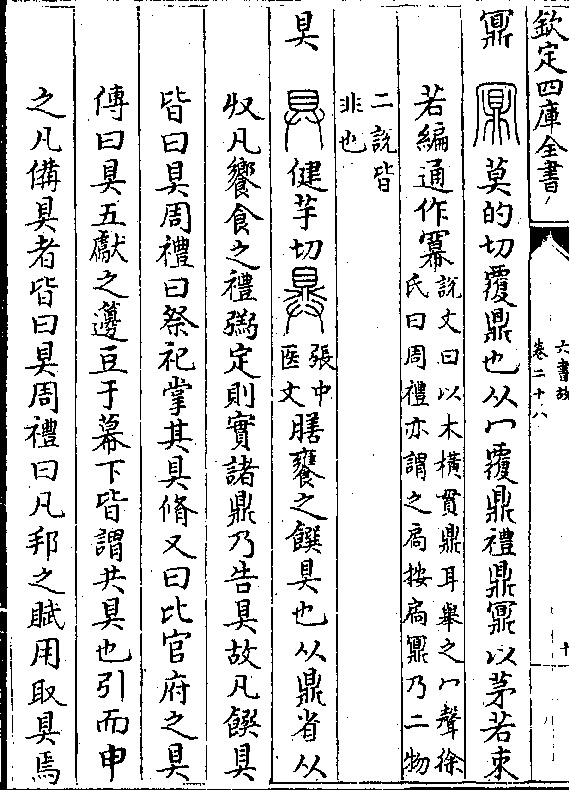 欽定四庫全書
六書故
卷二十八
十
鼏 莫的切覆鼎也从冖覆鼎禮鼎鼏以茅若束
若編通作冪
說文曰以木橫貫鼎耳舉之冖聲徐
氏曰周禮亦謂之扃按扃鼏乃二物
二說皆
非也
具 健芋切
張中
医文
膳饔之饌具也从鼎省从
収凡饗食之禮鬻定則實諸鼎乃告具故凡饌具
皆曰具周禮曰祭祀掌其具脩又曰比官府之具
傳曰具五獻之籩豆于幕下皆謂共具也引而申
之凡備具者皆曰具周禮曰凡邦之賦用取具焉